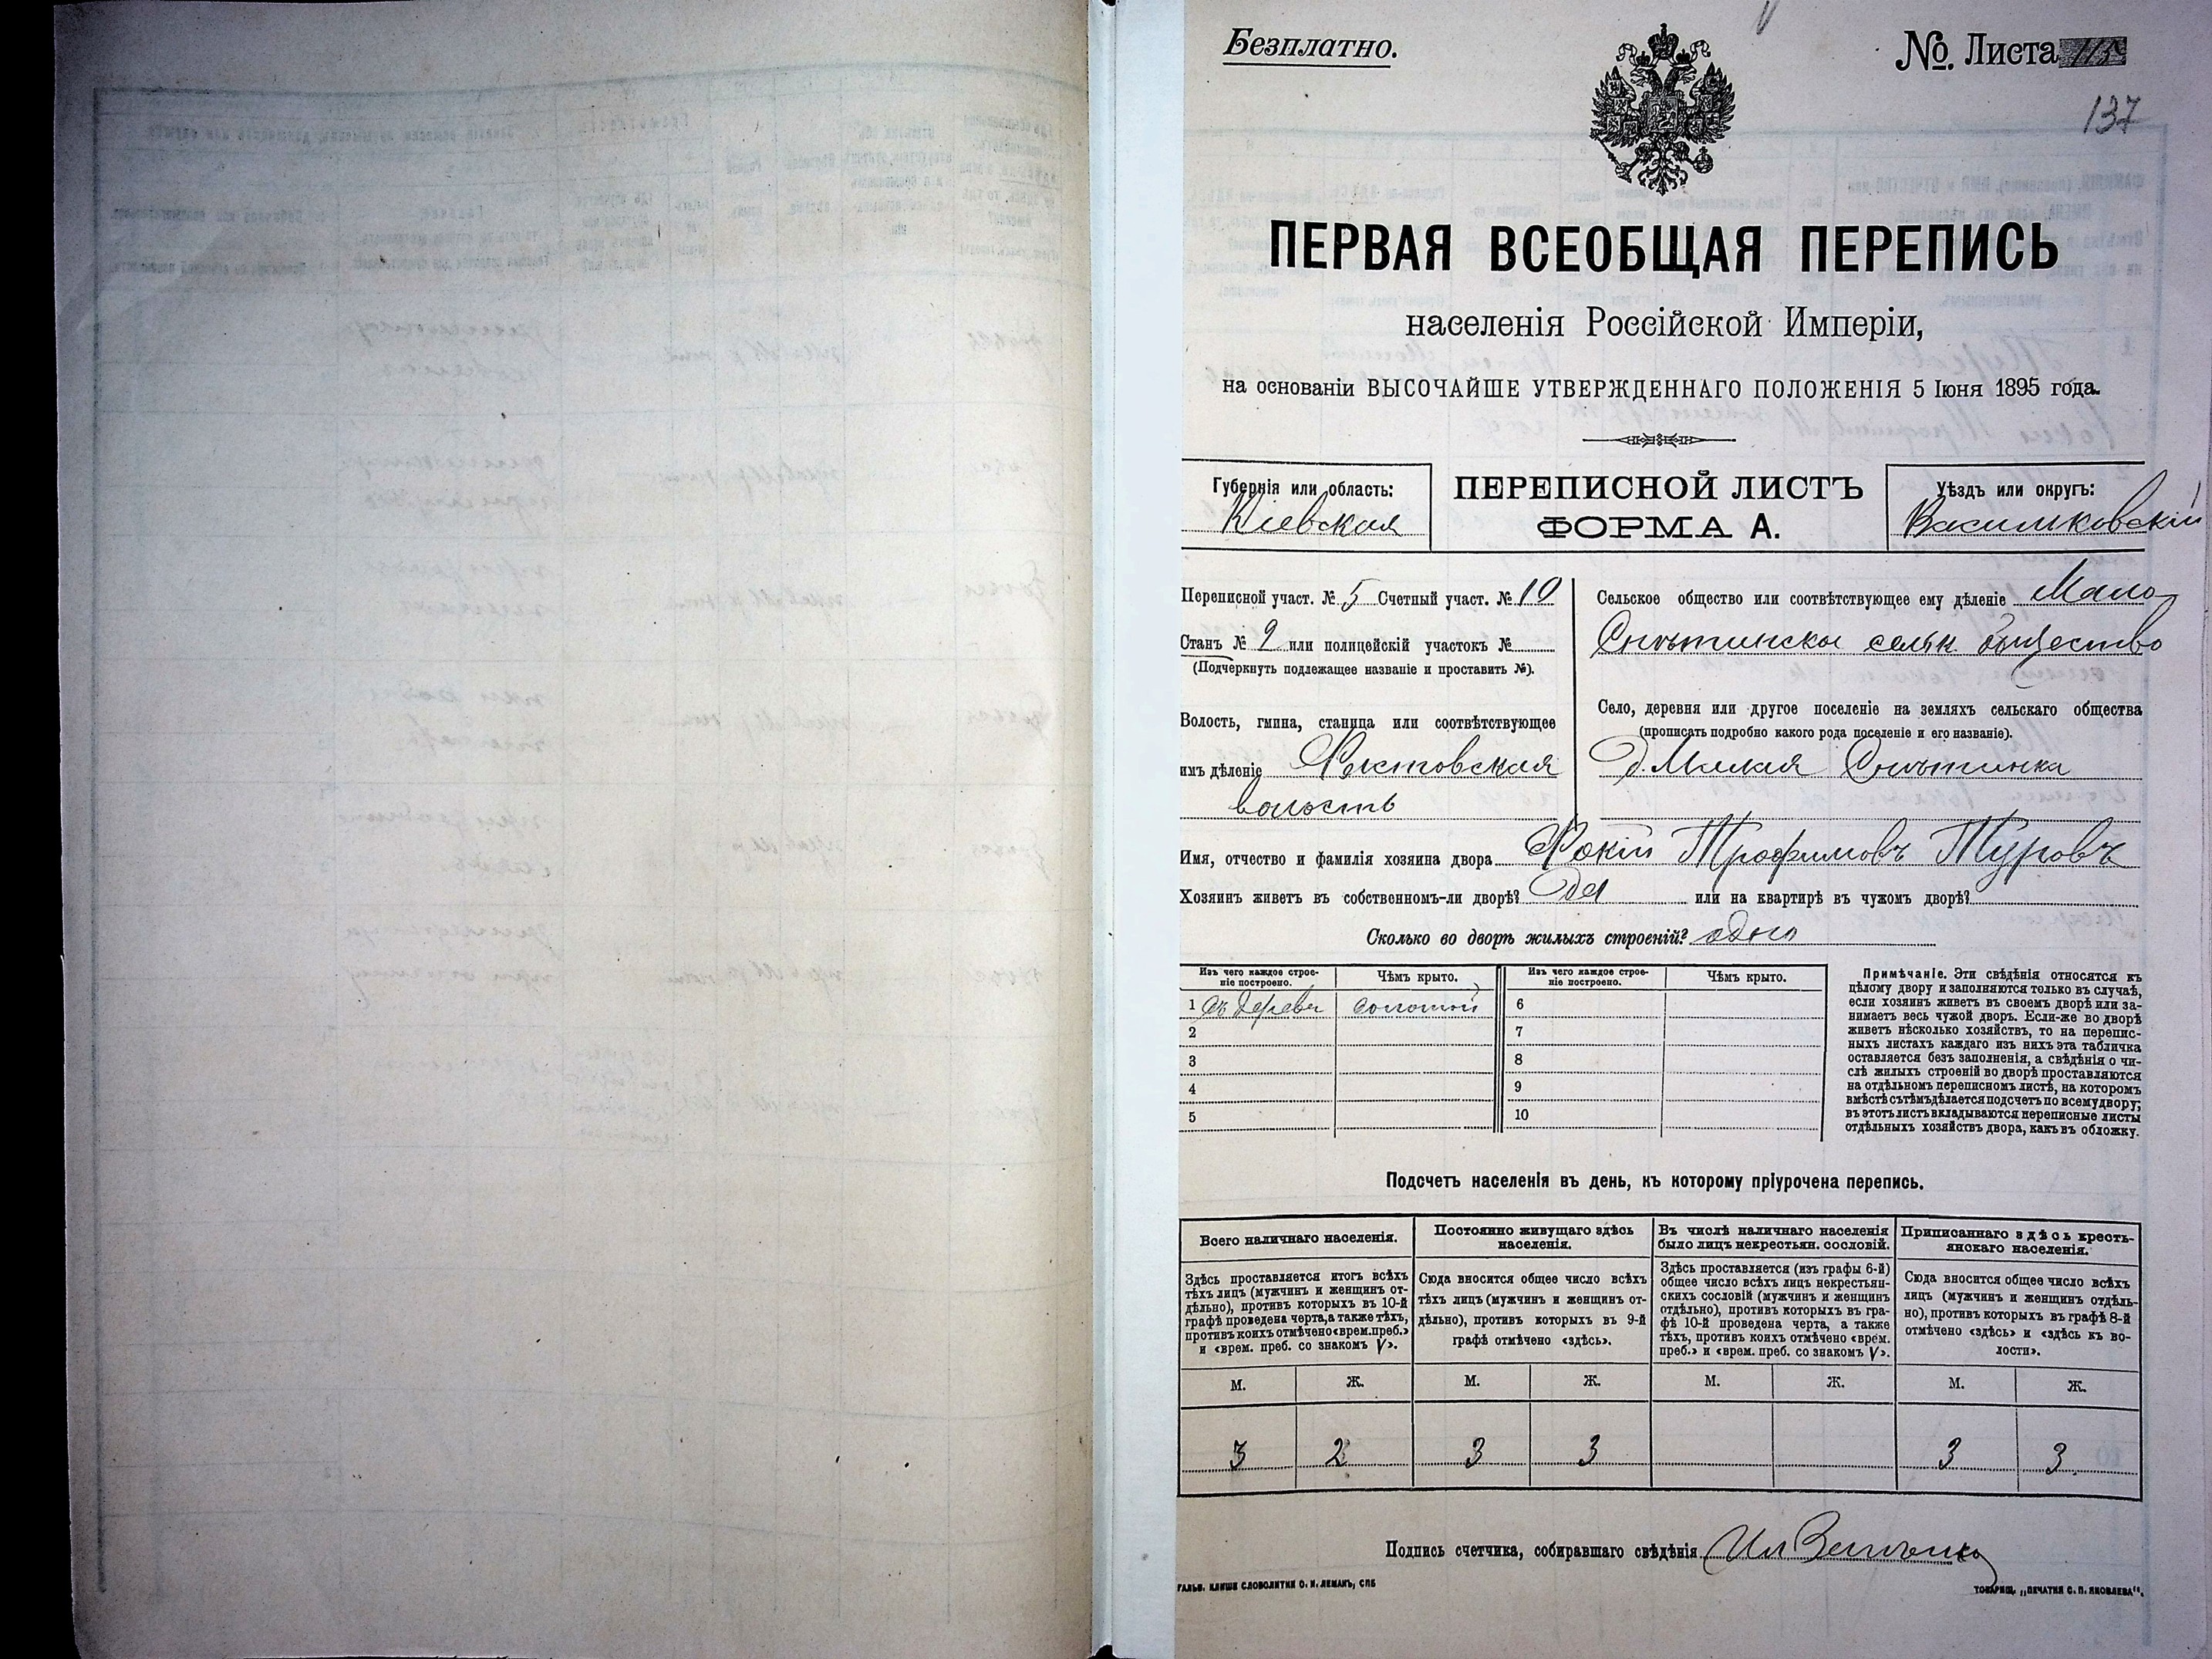 Безплатно.
№ Листа
137
ПЕРВАЯ ВСЕОБЩАЯ ПЕРЕПИСЬ
населенія Россійской Имперіи,
на основаніи ВЫСОЧАЙШЕ УТВЕРЖДЕННАГО ПОЛОЖЕНІЯ 5 Іюня 1895 года.
Губернія или область:
Кіевская
ПЕРЕПИСНОЙ ЛИСТЪ
ФОРМА А.
Уѣздъ или округъ:
Васильковскій
Переписной участ. № 5 Счетный участ. № 10
Станъ № 2 или полицейскій участокъ №
(Подчеркнуть подлежащее названіе и проставить №).
Волость, гмина, станица или соотвѣтствующее
имъ дѣленіе Фастовская
волость
Сельское общество или соотвѣтствующее ему дѣленіе Мало
Снѣтинское сельск. общество
Село, деревня или другое поселеніе на земляхъ сельскаго общества
(прописать подробно какого рода поселеніе и его названіе).
д. Малая Снѣтинка
Имя, отчество и фамилія хозяина двора Фокій Трофимовъ Туровъ
Хозяинъ живетъ въ собственномъ-ли дворѣ? Да или на квартирѣ въ чужомъ дворѣ?
Сколько во дворѣ жилыхъ строеній? одно
Изъ чего каждое строеніе построено.
Чѣмъ крыто.
Изъ чего каждое строеніе построено.
Чѣмъ крыто.
1 съ дерева соломой 6
2 7
3 8
4 9
5 10
Примѣчаніе. Эти свѣдѣнія относятся къ
цѣлому двору и заполняются только въ случаѣ,
если хозяинъ живетъ въ своемъ дворѣ или за-
нимаетъ весь чужой дворъ. Если-же во дворѣ
живетъ нѣсколько хозяйствъ, то на перепис-
ныхъ листахъ каждаго изъ нихъ эта табличка
оставляется безъ заполненія, а свѣдѣнія о чи-
слѣ жилыхъ строеній во дворѣ проставляются
на отдѣльномъ переписномъ листѣ, на которомъ
вмѣстѣ съ тѣмъ дѣлается подсчетъ по всему двору;
въ этотъ листъ вкладываются переписные листы
отдѣльныхъ хозяйствъ двора, какъ въ обложку.
Подсчетъ населенія въ день, къ которому пріурочена перепись.
Всего наличнаго населенія.
Здѣсь проставляется итогъ всѣхъ
тѣхъ лицъ (мужчинъ и женщинъ от-
дѣльно), противъ которыхъ въ 10-й
графѣ проведена черта, а также тѣхъ,
противъ коихъ отмѣчено «врем. преб.»
и «врем. преб. со знакомъ V».
Постоянно живущаго здѣсь
населенія.
Сюда вносится общее число всѣхъ
тѣхъ лицъ (мужчинъ и женщинъ от-
дѣльно), противъ которыхъ въ 9-й
графѣ отмѣчено «здѣсь».
Въ числѣ наличнаго населенія
было лицъ некрестьян. сословій.
Здѣсь проставляется (изъ графы 6-й)
общее число всѣхъ лицъ некрестьян-
скихъ сословій (мужчинъ и женщинъ
отдѣльно), противъ которыхъ въ гра-
фѣ 10-й проведена черта, а также
тѣхъ, противъ коихъ отмѣчено «врем.
преб.» и «врем. преб. со знакомъ V».
Приписаннаго здѣсь кресть-
янскаго населенія.
Сюда вносится общее число всѣхъ
лицъ (мужчинъ и женщинъ отдѣль-
но), противъ которыхъ въ графѣ 8-й
отмѣчено «здѣсь» и «здѣсь къ во-
лости».
М. Ж. М. Ж. М. Ж. М. Ж.
3 2 3 3 3 3
Подпись счетчика, собиравшаго свѣдѣнія
ГАЛЬВ. КЛИШЕ СЛОВОЛИТНИ О. И. ЛЕМАНЪ, СПБ
ТОВАРИЩ. „ПЕЧАТНЯ С. П. ЯКОВЛЕВА“.